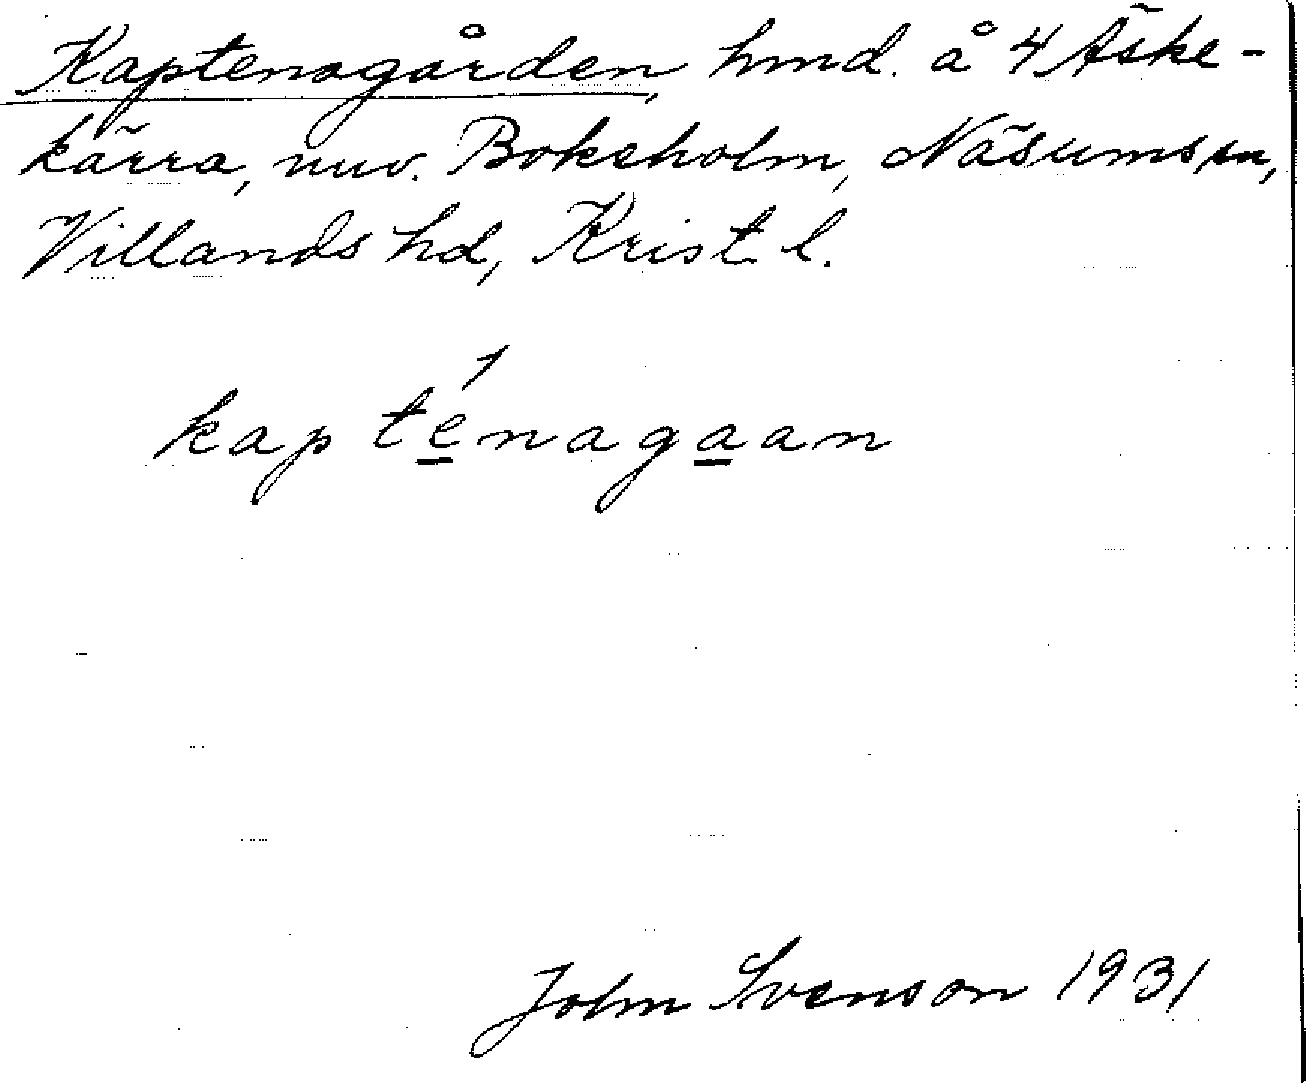 Kaptenagården, hmd. å 4 Äske-
kärra, nuv. Bokeholm, Näsums sn,
Villands hd, Krist. l.
kapténagaan
John Svenson 1931